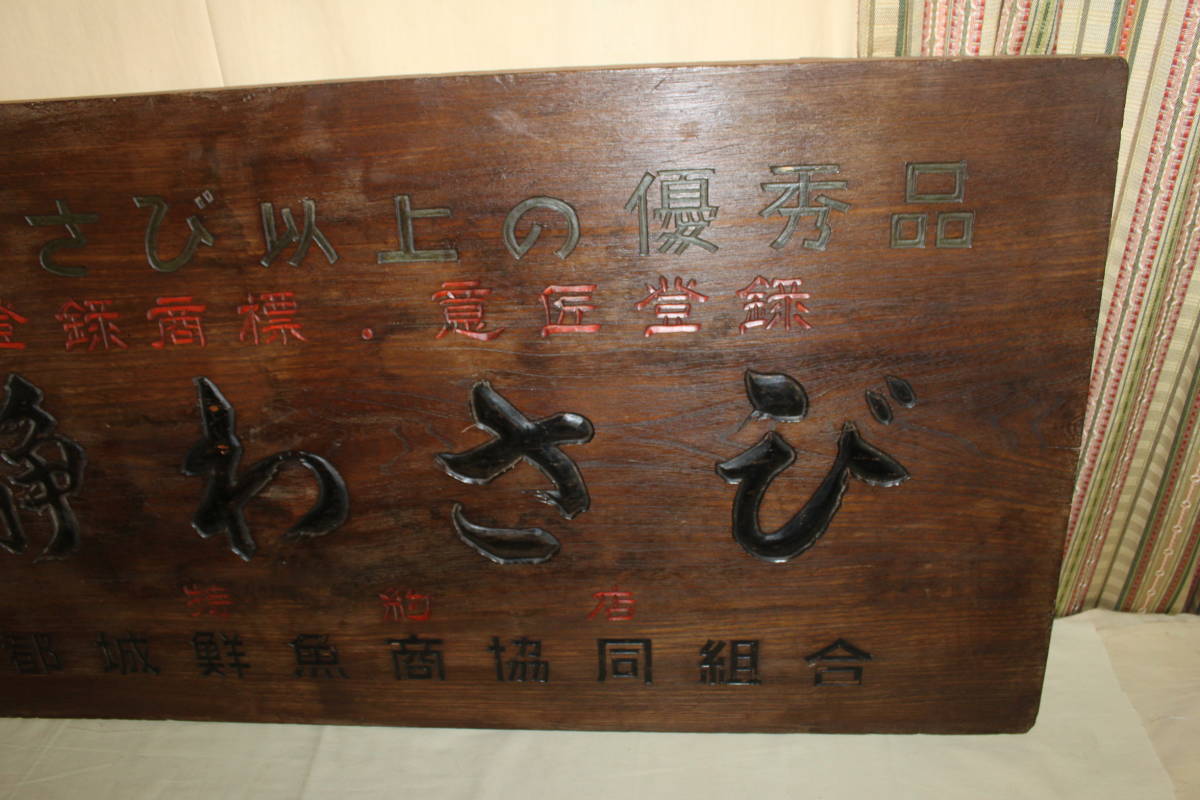 さび以上の優秀品
登録商標・意匠登録
静わさび
特約店
都城鮮魚商協同組合